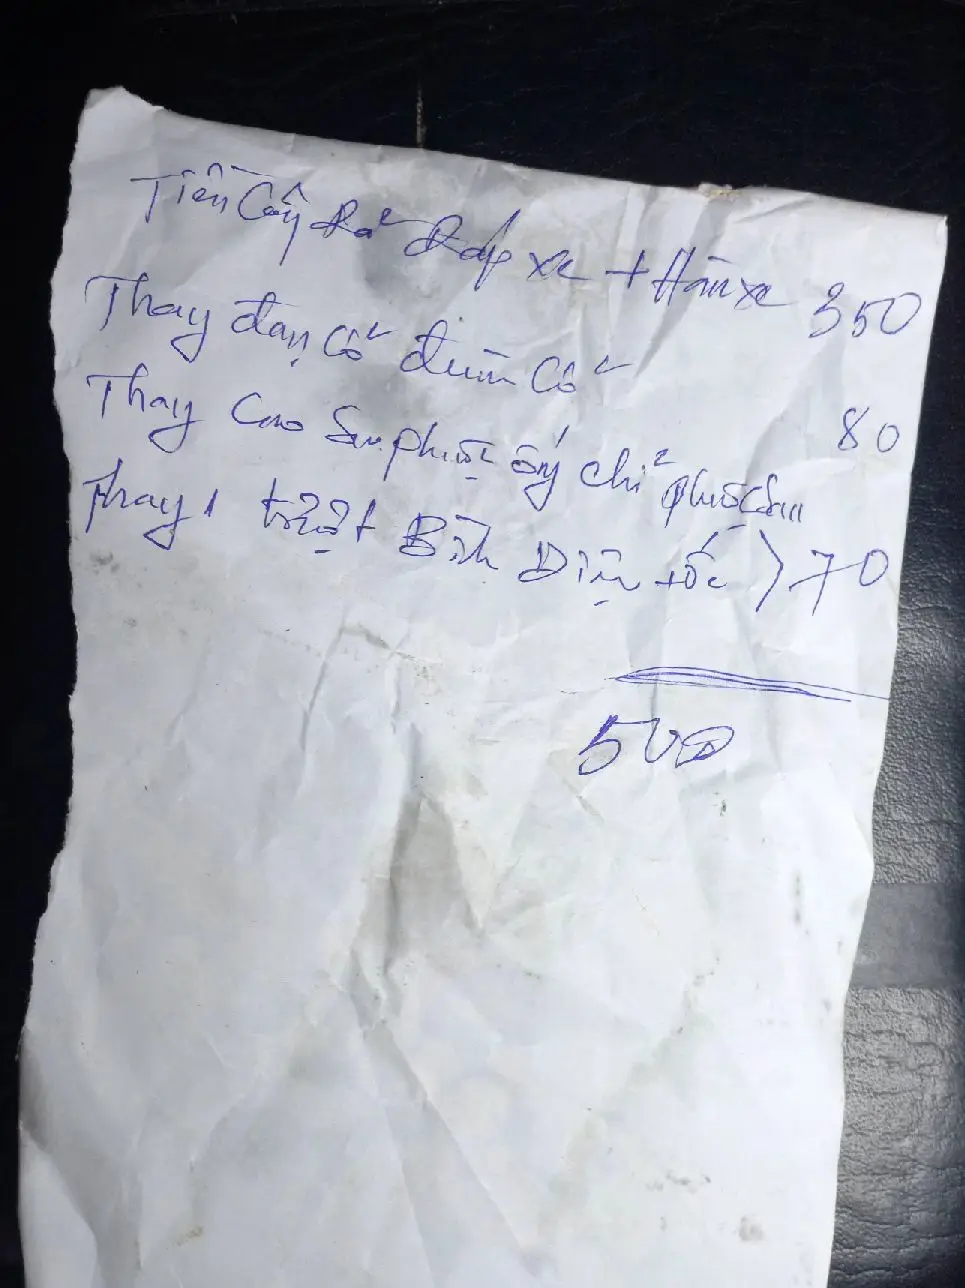 Tiền Công Rả Ráp xe + Hàn xe 350
Thay đạn cổ đùm cổ 80
Thay cao su phuộc ống chỉ phuộc sau
Thay 1 trượt Bình Điện tốc > 70
500